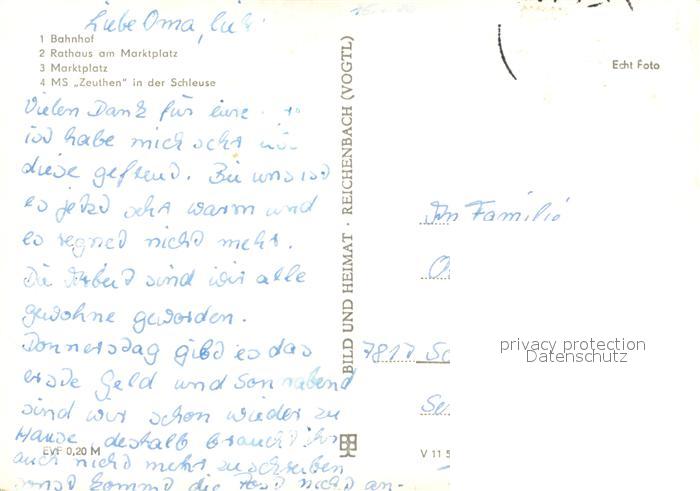 Liebe Oma, lieb
1 Bahnhof
2 Rathaus am Marktplatz
3 Marktplatz
4 MS „Zeuthen" in der Schleuse
Vielen Dank für eure
ich habe mich sehr
diese gefreud. Bei uns ist
es jetzt sehr warm und
es regned nichd mehr.
Die Arbeid sind wir alle
gewohne geworden.
Donnersdag gibd es das
ersde Geld und Sonnabend
sind wir schon wieder zu
Hause, deshalb brauchd ihr
auch nichd mehr zu schreiben
sonsd kommd die Posd nichd an-
EVP 0,20 M
BILD UND HEIMAT · REICHENBACH (VOGTL)
Echt Foto
An Familie
7817 Sc
V 11 5
privacy protection
Datenschutz